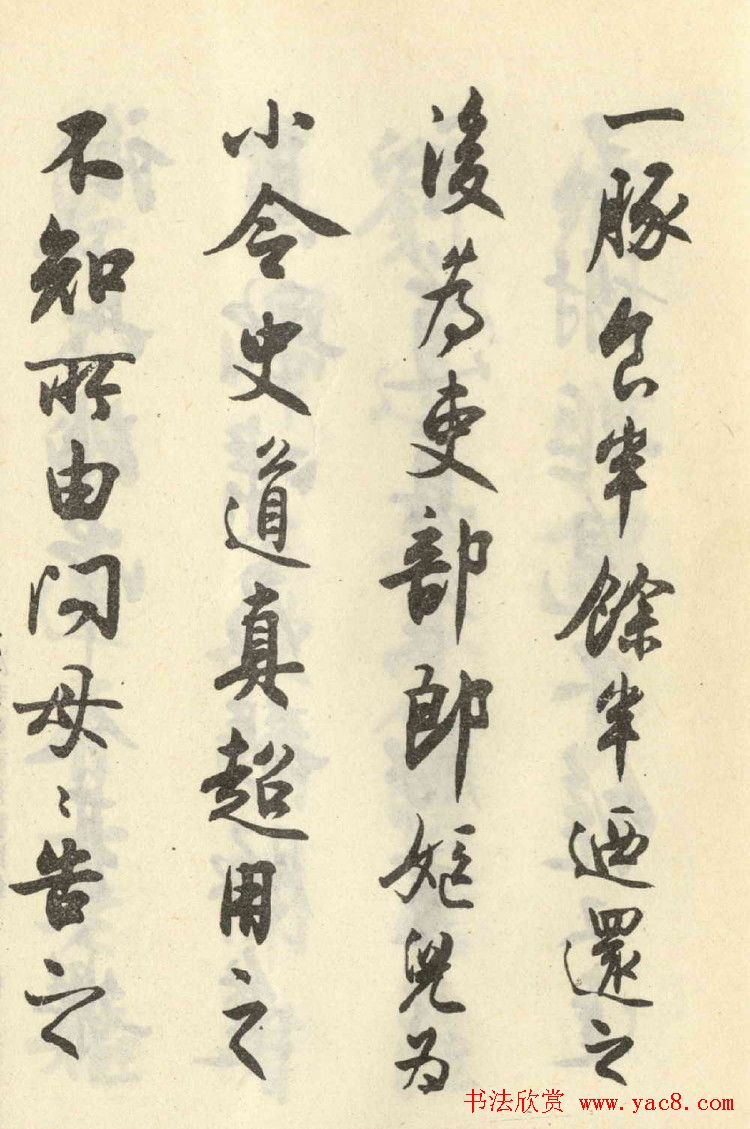 一豚食半餘半迺還之
後為吏部郎嫗兒為
小令史道真超用之
不知所由問母〻告之
书法欣赏 www.yac8.com